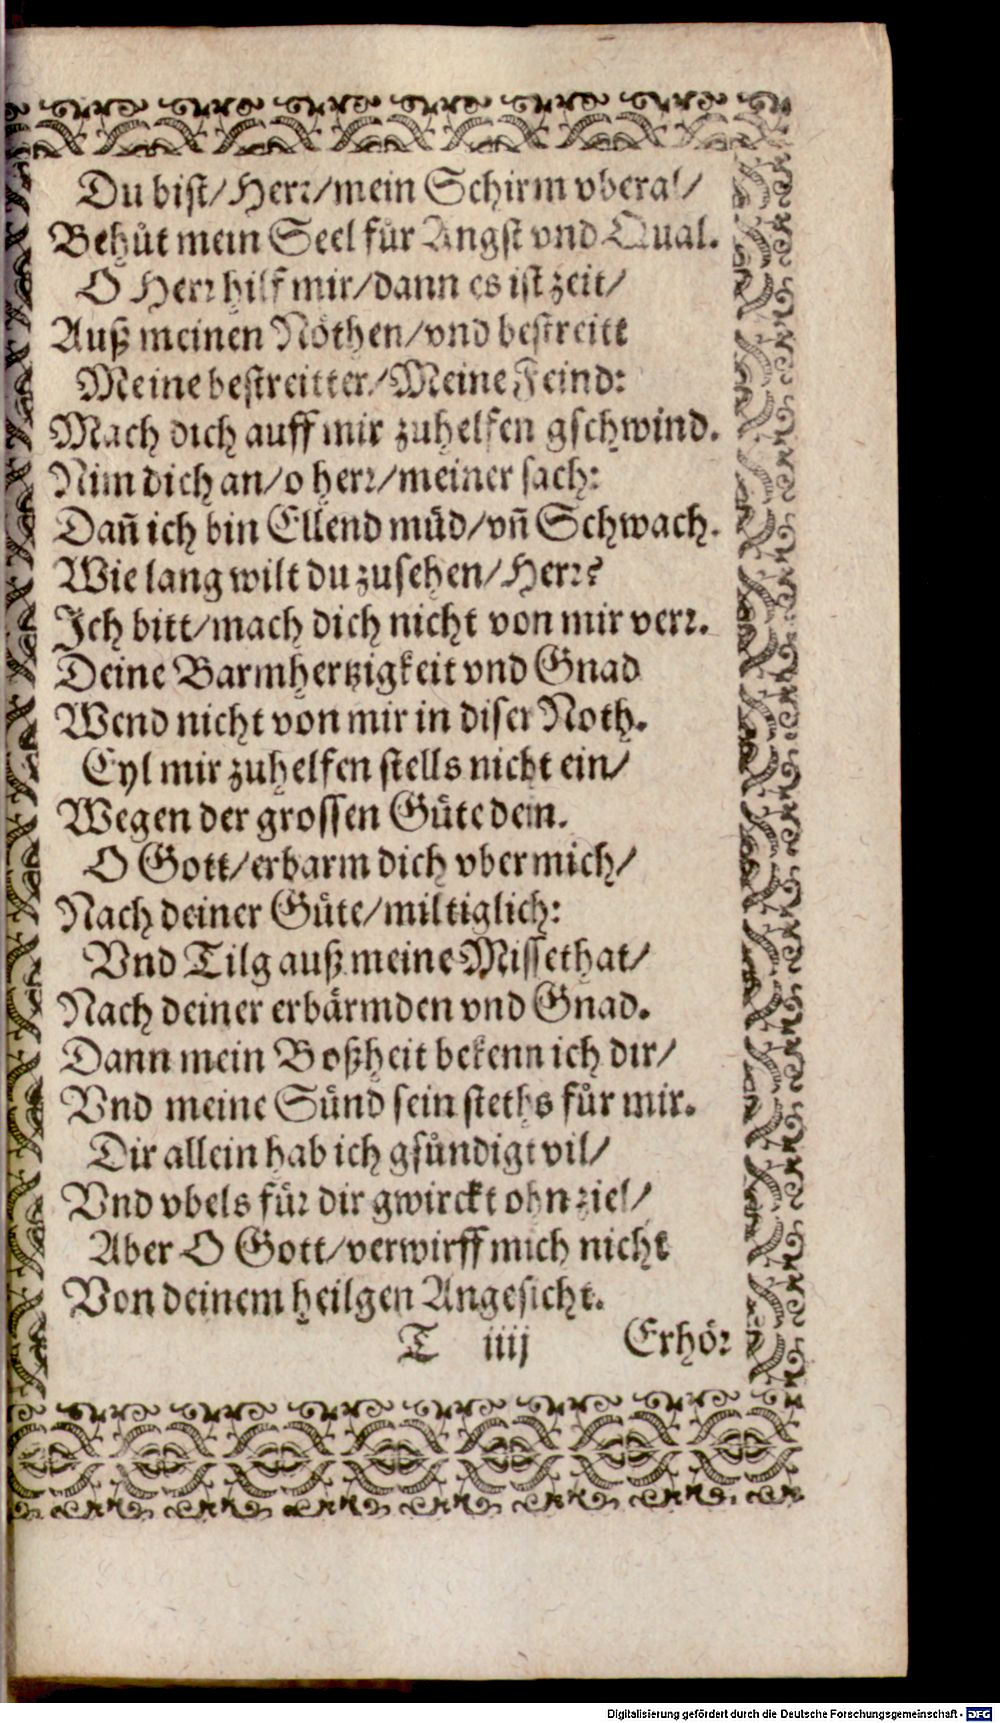 Du bist/Herr/mein Schirm vberal/
Behuͤt mein Seel fuͤr Angst vnd Qual.
O Herr hilf mir/dann es ist zeit/
Auß meinen Noͤthen/vnd bestreitt
Meine bestreitter/Meine Feind:
Mach dich auff mir zuhelfen gschwind.
Nim dich an/o herr/meiner sach:
Dañ ich bin Ellend muͤd/vñ Schwach.
Wie lang wilt du zusehen/Herr?
Ich bitt/mach dich nicht von mir verr.
Deine Barmhertzigkeit vnd Gnad
Wend nicht von mir in diser Noth.
Eyl mir zuhelfen stells nicht ein/
Wegen der grossen Guͤte dein.
O Gott/erbarm dich vber mich/
Nach deiner Guͤte/miltiglich:
Vnd Tilg auß meine Missethat/
Nach deiner erbaͤrmden vnd Gnad.
Dann mein Boßheit bekenn ich dir/
Vnd meine Suͤnd sein steths fuͤr mir.
Dir allein hab ich gsuͤndigt vil/
Vnd vbels fuͤr dir gwirckt ohn ziel/
Aber O Gott/verwirff mich nicht
Von deinem heilgen Angesicht.
T iiij Erhoͤr
Digitalisierung gefördert durch die Deutsche Forschungsgemeinschaft - DFG